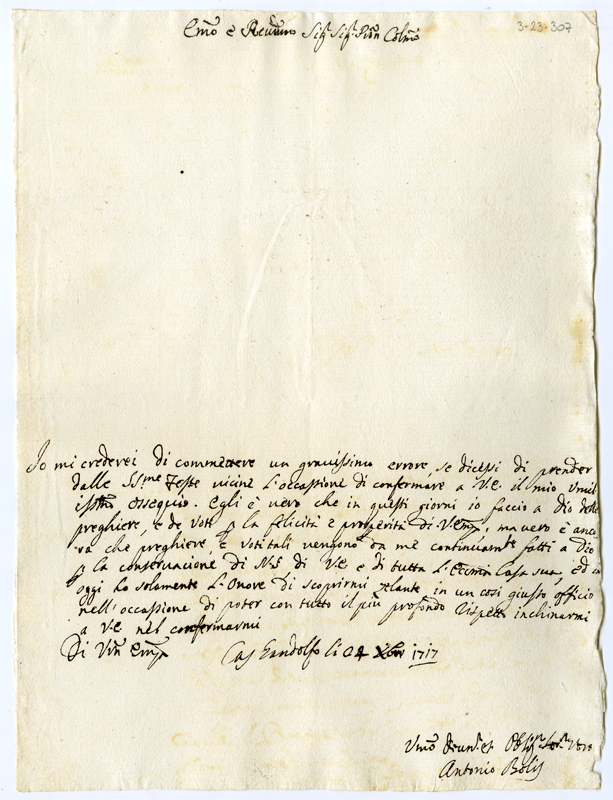 3-23-307
Emo è Revmo Sig Sig Pron Colmo
Io mi crederei di commettere un gravissimo errore, se dicessi di prender
dalle SSme Feste vicine l'occassione di confermare a V.E. il mio Umil
issmo ossequio. Egli è vero che in questi giorni io faccio a Dio delle
preghiere, e de voti la felicità e prosperità di V. Emza, ma vero è anco
ra che preghiere, e voti tali vengono da me continuamte fatti a Dio
la conservazione di di V.E. e di tutta l'Eccma Casa sua, ed in
oggi ho solamente l'Onore di scoprirmi zelante in un così giusto officio
nell'occassione di poter con tutto il più profondo rispetto inchinarmi
a V.E. nel confermarmi
Di Vra Emza Cas Gandolfo li 24 Xbre 1717
Umo Obl
Antonio Bolis